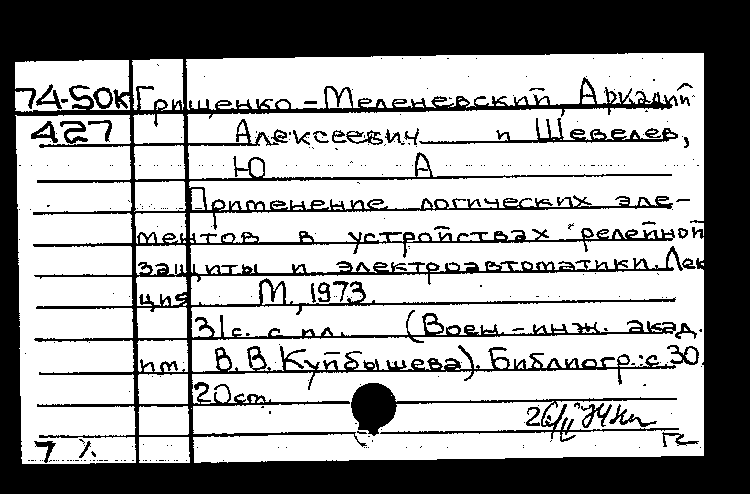 74-50к Грищенко-Меленевский, Аркадий
427 Алексеевич и Шевелев,
Ю А
Применение логических эле-
ментов в устройствах релейной
защиты и электроавтоматики. Лек
ция. М., 1973.
31с. с ил. (Воен.-инж. акад.
им. В.В. Куйбышева). Библиогр.: с 30.
20см.
7